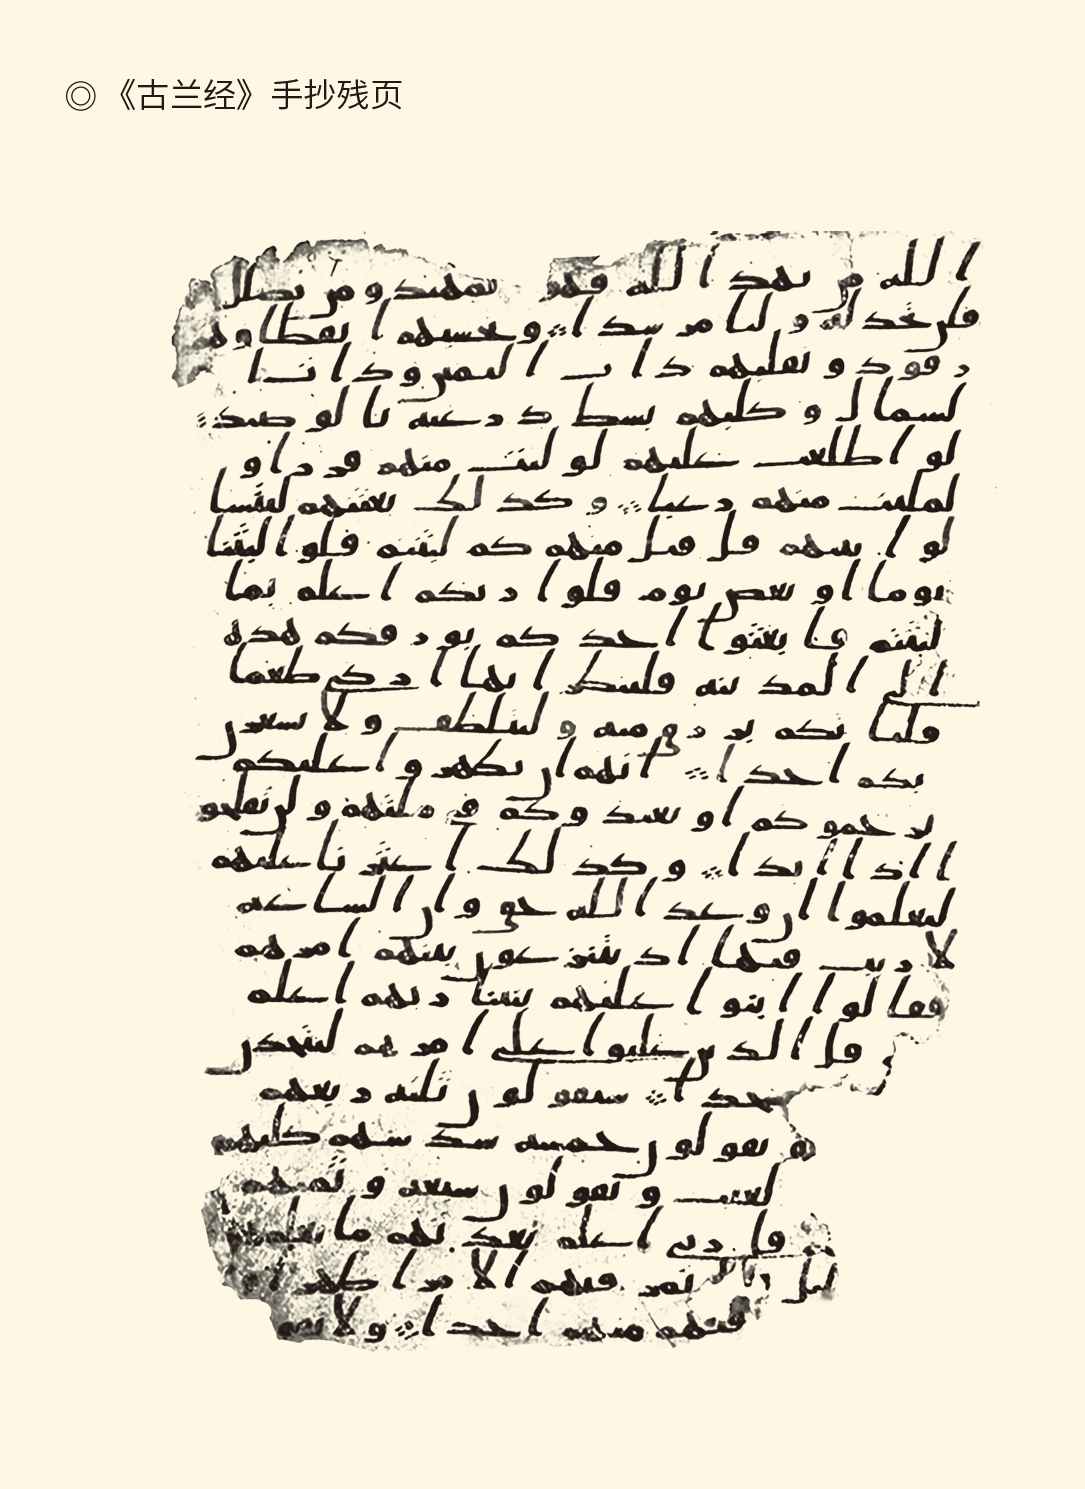 ◎《古兰经》手抄残页
الله من يهد الله فهو المهتد و من يضلل
فلن تجد له و ليا مرشدا و تحسبهم ا يقظا و هم
رقود و نقلبهم ذات اليمين و ذات ا
لشمال و كلبهم بسط ذرعيه با لوصيد
لو اطلعت عليهم لوليت منهم فررا و
لملئت منهم رعبا و كذلك بعثنهم ليتسا
لوا بينهم قل قيل منهم كم لبثتم قلوا لبثنا
يوما او بعض يوم قلوا ربكم اعلم بما
لبثتم فا بعثوا احدكم بورقكم هذه
الى المدينه فلينظر ايها ازكى طعما
فلياتكم برزق منه و ليتلطف و لا يشعرن
بكم احدا انهم ان يظهروا عليكم
يرجموكم او يعيدوكم في ملتهم و لن تفلحو
ا اذا ابدا و كذلك اعثرنا عليهم
ليعلموا ان وعد الله حق و ان الساعه
لا ريب فيها اذ يتنزعون بينهم امرهم
فقالوا ابنوا عليهم بنينا ربهم اعلم
قل الذين غلبوا على امرهم لنتخذن
مسجدا سيقولون ثلثه ربعهم
يقولون خمسه سدسهم كلبهم
لغيب و يقولون سبعه و ثمنهم
قل ربي اعلم بعدتهم ما يعلمهم
ليل تمر فيهم الا مرا ظهرا
منهم احدا و لا تقو